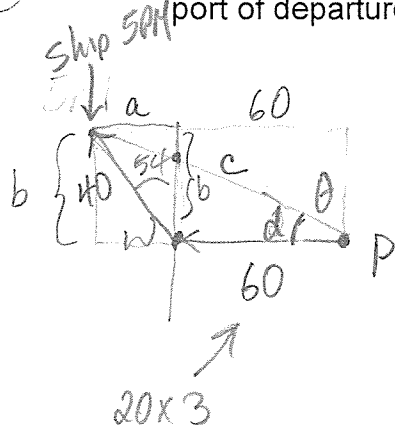 port of departure
ship 5PM
a 60
b 40 54 b c θ
W d P
60
20 x 3